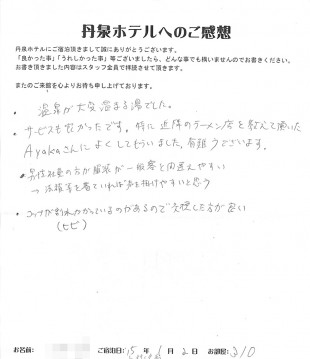 丹泉ホテルへのご感想
丹泉ホテルにご宿泊頂きまして誠にありがとうございます。
「良かった事」「うれしかった事」等ございましたら、どんな事でも構いませんのでお書きください。
お書き頂きました内容はスタッフ全員で拝読させて頂きます。
またのご来館を心よりお待ち申し上げております。
・温泉が大変温まる湯でした。
・サービスも良かったです。特に近隣のラーメン店を教えて頂いた
Ayakaさんによくしてもらいました。有難うございます。
・男性社員の方が服装が一般客と間違えやすい
→法被等を着ていれば声を掛けやすいと思う
・コップが割れかかっているのがあるので交換した方が良い
(ヒビ)
お名前: ご宿泊日:15年 月2日 お部屋:310